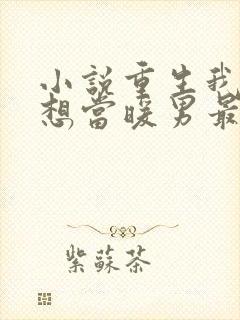 小說重生我
想當暖男最
紫蘇茶